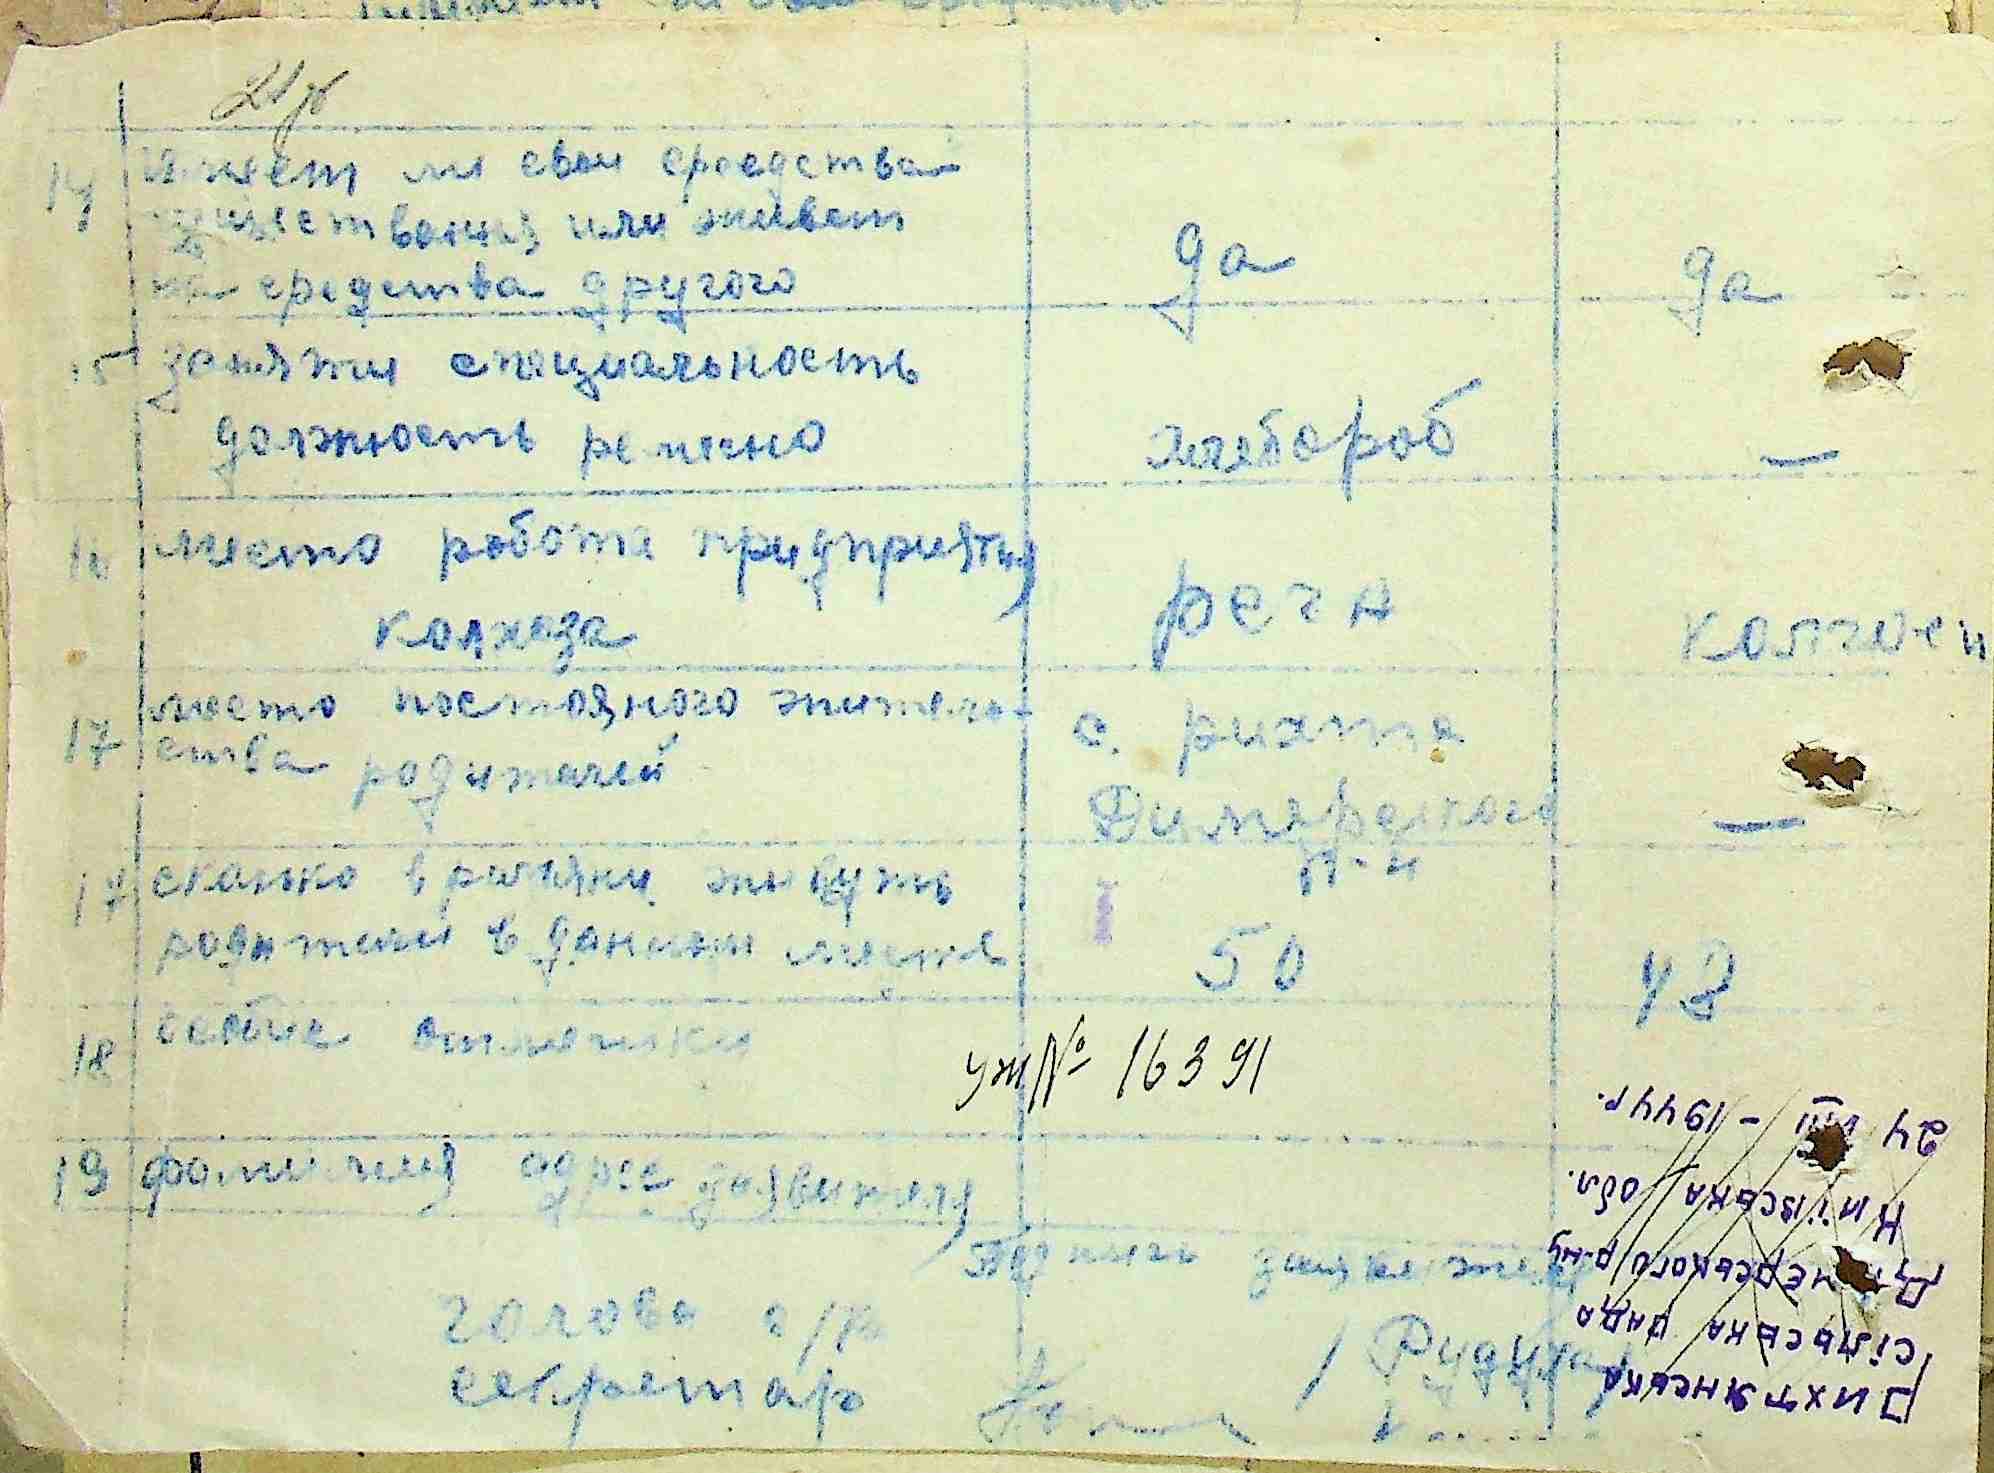 14 Имеет ли свои средства
или живет
на средства другого
да
да
15 заняти специальность
должность ремесно
хлебороб
—
16 место робота придприятия
колхоза
колгосп
17 место постояного житель-
ства родителей
с. рихта
Димерского
р-н
—
17 сколько времяни живуть
родители в данном месте
50
48
18 особие отметки
уж № 16391
19 фамилия адрес заявителя
голова с/р
секретар
Рихтянська
сільська рада
Димерського р-ну
Київська обл.
24 VIII - 1944 р.